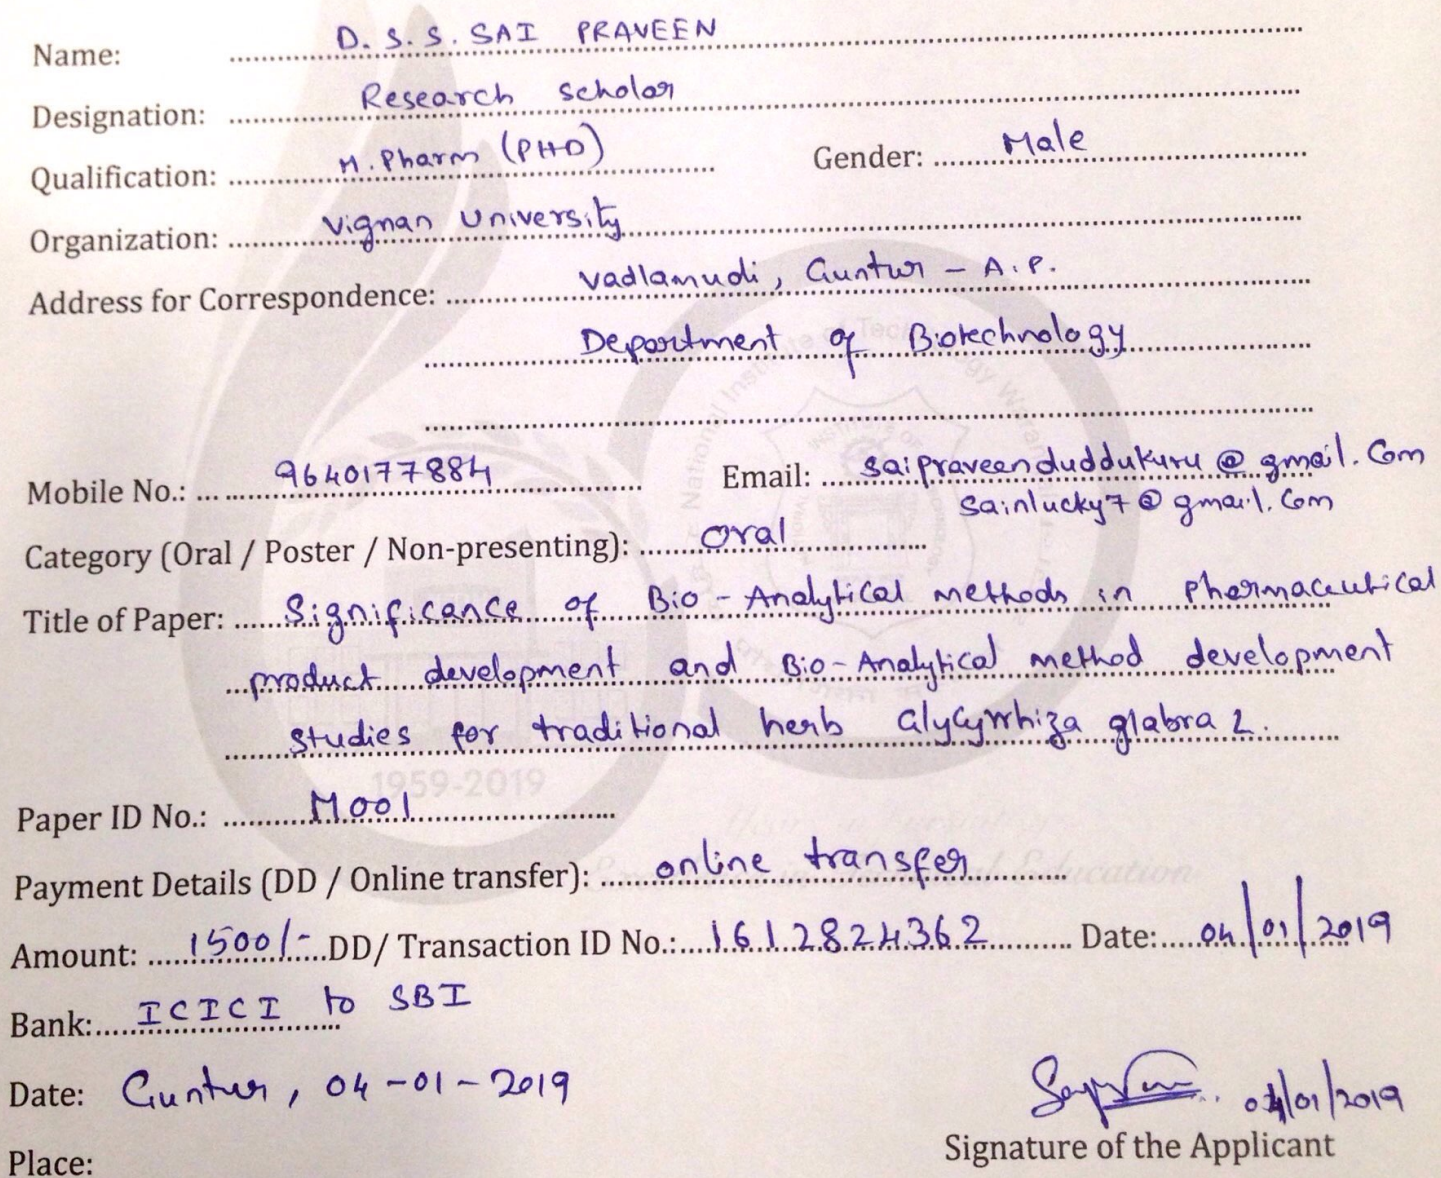 Name: D. S. S. SAI PRAVEEN
Designation: Research scholar
Qualification: M. Pharm (PHD) Gender: Male
Organization: Vignan University
Address for Correspondence: Vadlamudi, Guntur - A.P.
Department of Biotechnology
Mobile No.: 9640177884 Email: saipraveenduddukuru@gmail.com
sainlucky7@gmail.com
Category (Oral / Poster / Non-presenting): oral
Title of Paper: Significance of Bio-Analytical methods in pharmaceutical
product development and Bio-Analytical method development
studies for traditional herb Glycyrrhiza glabra L.
1959-2019
Paper ID No.: M001
Payment Details (DD / Online transfer): online transfer
Amount: 1500/- DD/ Transaction ID No.: 1612824362 Date: 04/01/2019
Bank: ICICI to SBI
Date: Guntur, 04-01-2019
04/01/2019
Signature of the Applicant
Place: